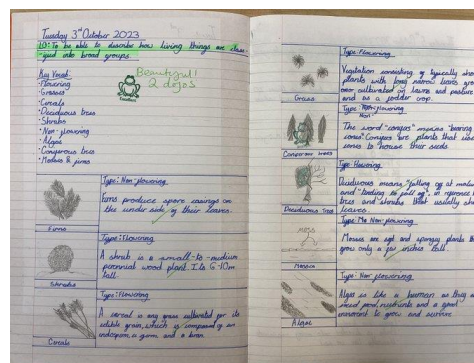 Tuesday 3rd October 2023
LO: To be able to describe how living things are class
-ified into broad groups.
Key Vocab:
·Flowering
·Grasses
·Cereals
·Deciduous trees
·Shrubs
·Non-flowering
·Algae
·Coniferous trees
·Mosses & ferns
Beautiful!
2 dojos
Type: Non-flowering
Ferns produce spore casings on
the under side of their leaves.
Ferns
Type: Flowering
A shrub is a small-to-medium
perennial wood plant. Is 6-10m
tall.
Shrubs
Type: Flowering
A cereal is any grass cultivated for its
edible grain, which is composed of an
endosperm, a germ and a bran.
Cereals
Type: Flowering
Vegetation consisting of typically short
plants with long narrow leaves
cultivated on lawns and pasture
and as a fodder crop.
Grass
Type:
Non-
The word "conifer" means "bearing
cones". Conifers are plants that use
cones to house their seeds.
Coniferous trees
Type: Flowering
Deciduous means "falling off at
and "tending to fall off", in reference to
trees and shrubs that usually
leaves.
Deciduous Trees
Type: Non flowering
Mosses are soft and spongy plants
grow only a few inches tall.
MOSS
Mosses
Type: Non flowering
Algae is like a human as they
need food, nutrients and a good
environment to grow and survive
Algae